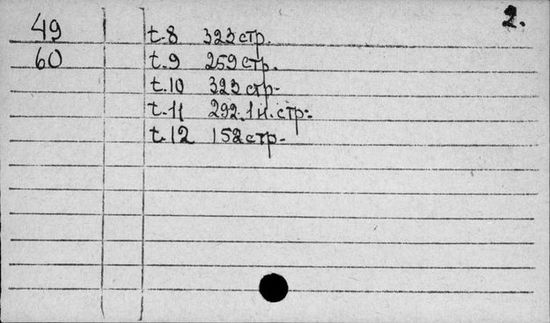 2.
49 t.8 323 стр.
60 t.9 259 стр.
t.10 323 стр.
t.11 292.1н. стр.
t.12 152 стр.